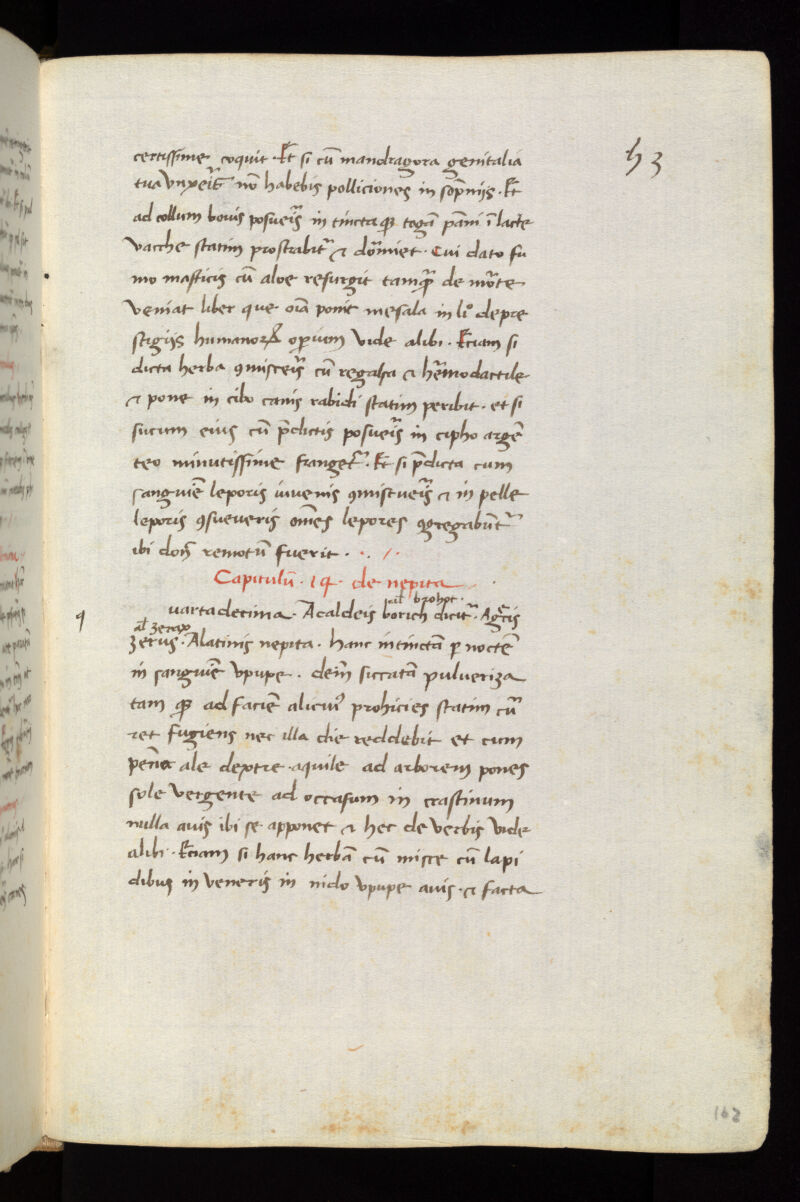 h3
certissime coquit · Et si cũ mandragora genitalia
tua vnxeris nõ habebis polliciones in sõpnijs · Et
ad collum bouis posueis in tincta togã pãni ĩ lacte
vacche statim prostrabit et dormiet · Cui dato fu
mo masticis cũ aloe resurgit tamq̃ de mõte
veniat liber que oĩa ponit mesala in lio depre
stigijs humanorꝝ operum vide alibi · Etiam si
dicta herba ꝯmisceis cũ regalia et hermodactile
et pone in cibo canis rabidi statim peribit · et si
sucum eius cũ p̃dictis posueis in cipho argẽ
teo minutissime franget · Et si p̃dicta cum
sanguiẽ leporis iuuenis ꝯmistueis et in pelle
leporis ꝯsueueris om̃es lepores ꝯgregabũt
ibi donec remotũ fuerit ·
Capitulũ · 14 · de nepita
al brohot ·
q uartadecima · Acaldeis borich dicit · Agrecis
al zerax
zerus · Alatinis nepita · hanc intinctã p noctẽ
in sanguiẽ vpupe · deĩ siccatã puluerіza
tam ad faciẽ alicui prohicies statim cur
ret fugiens nec illa die reddebit et cum
penna ale dextre aquile ad arborem pones
sole vergente ad occasum in crastinum
nulla auis ibi se apponet et hec de verbis vide
alibi · Etiam si hanc herbã cũ misce cũ lapi
dibus in veneris in nido vpupe auis · et facta
162